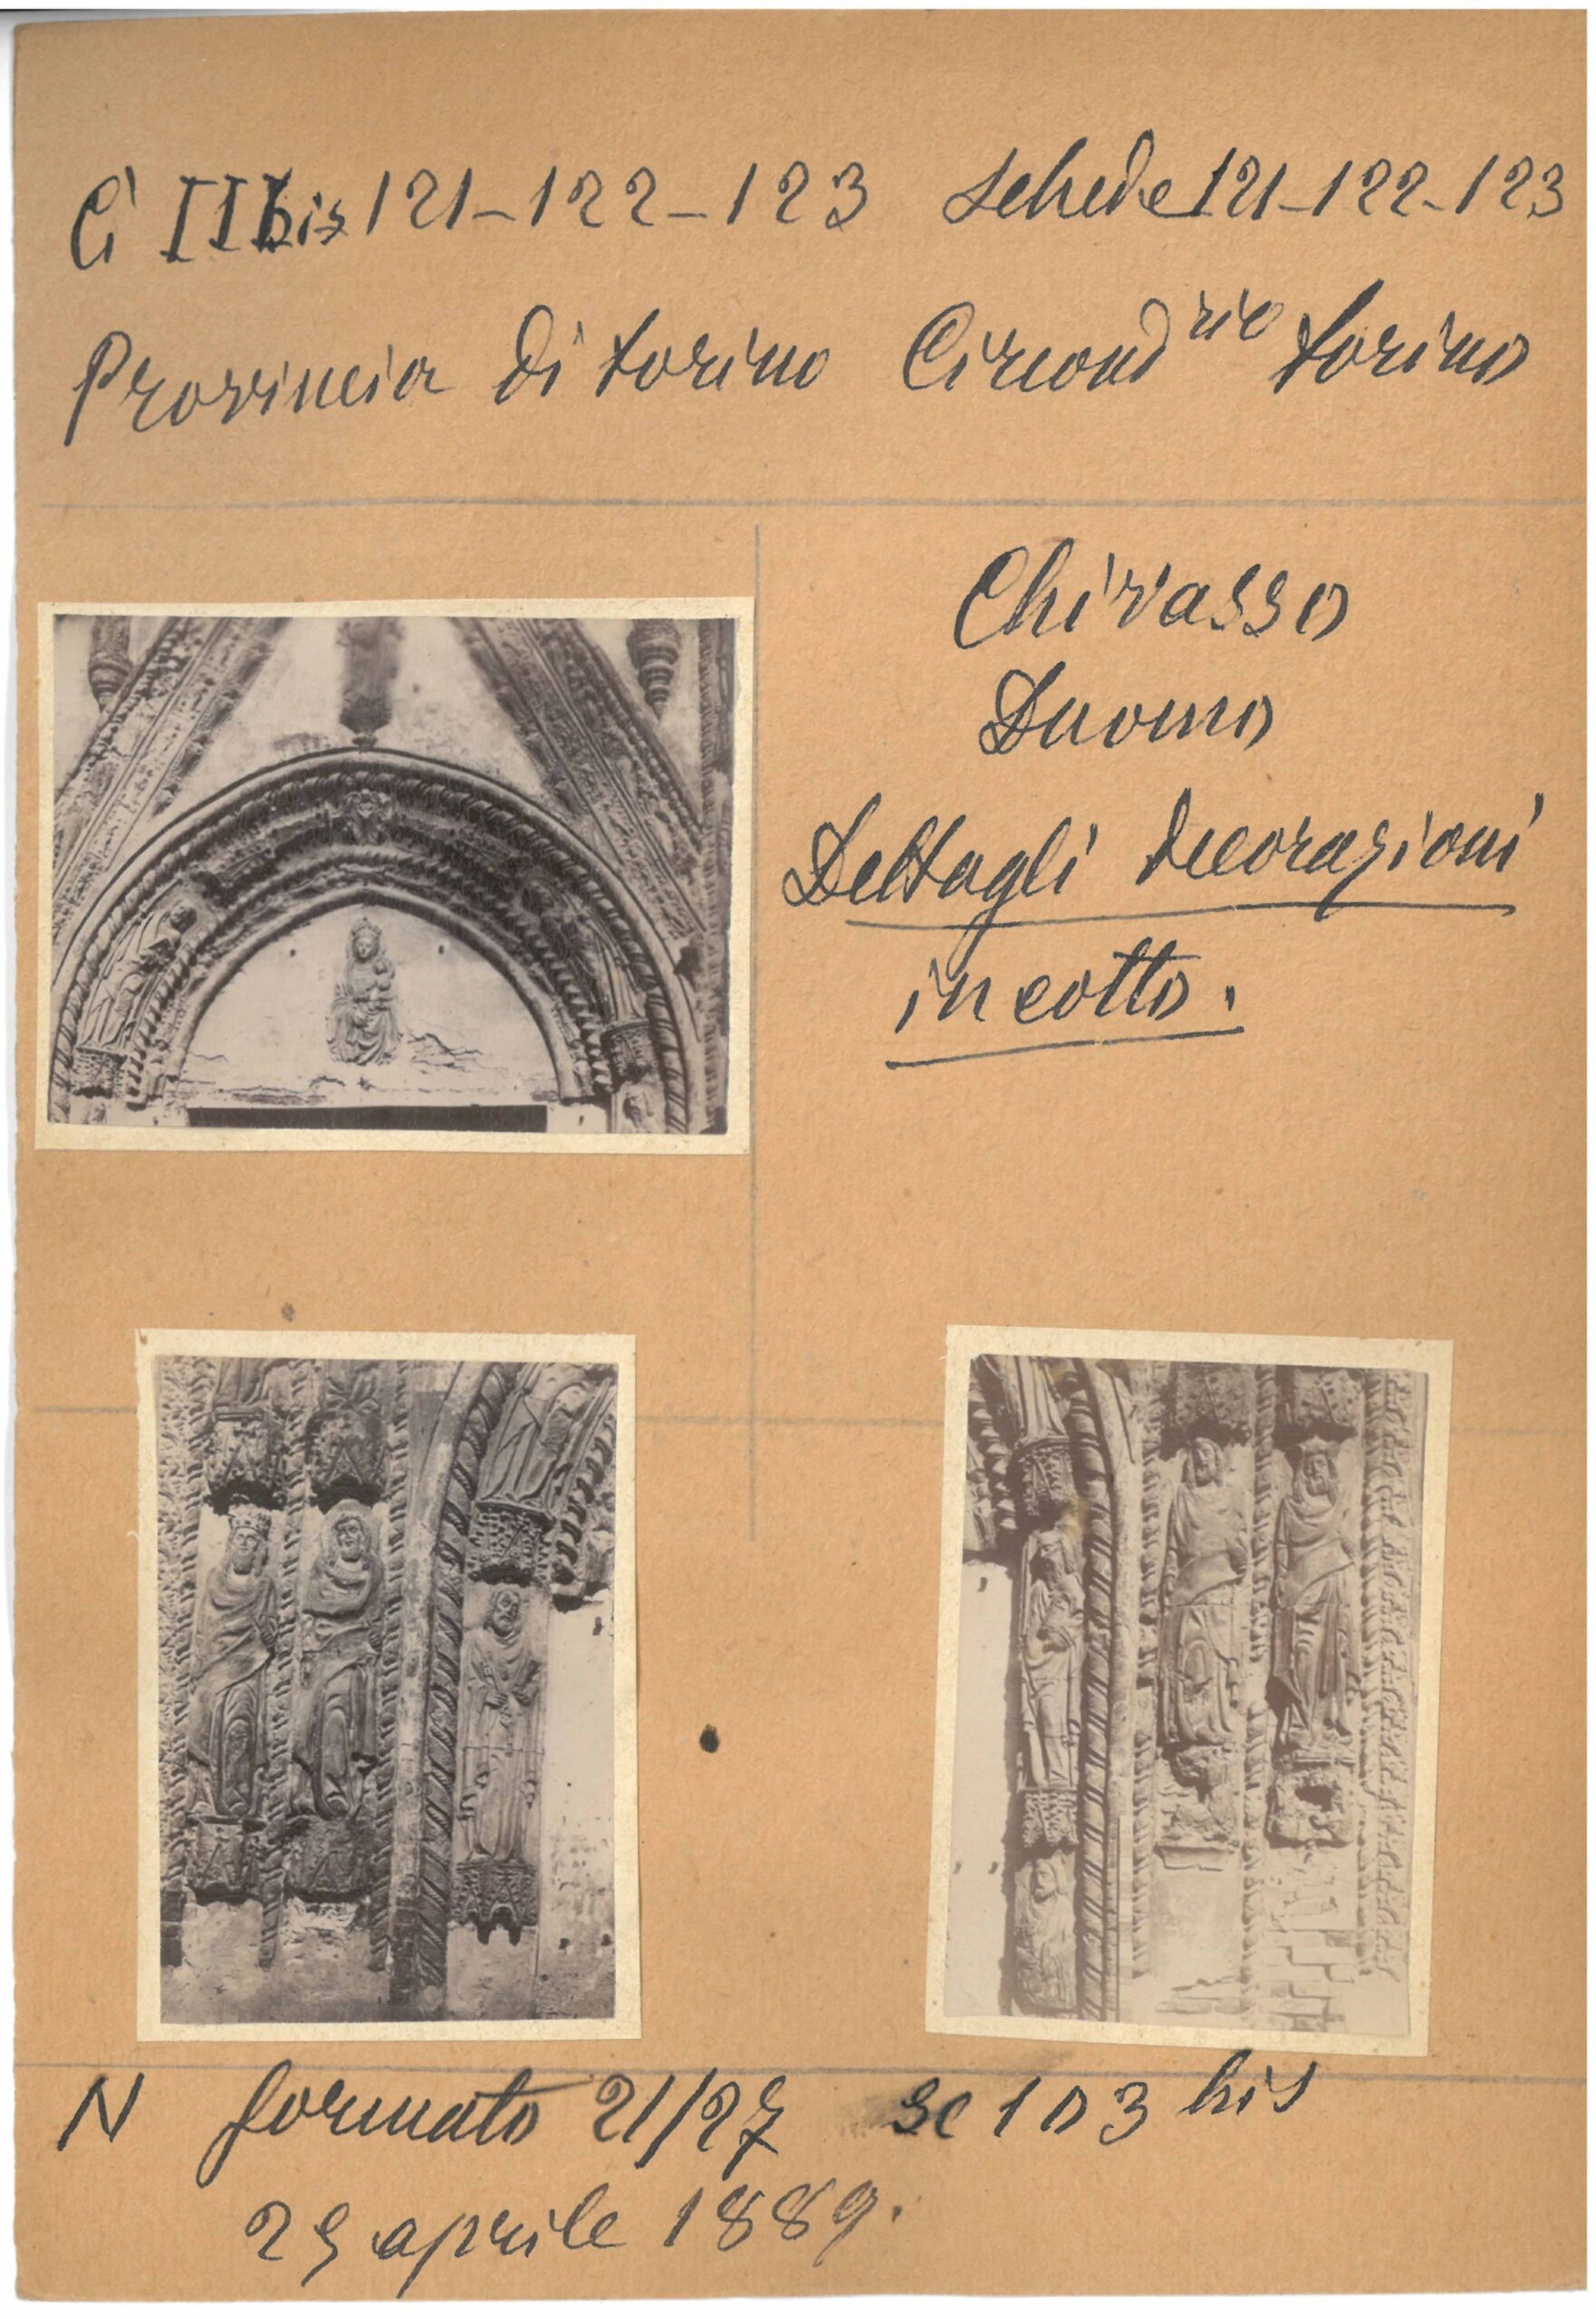 Ci IIbis 121-122-123 Schede 121-122-123
Provincia di Torino Circond rio Torino
Chivasso
Duomo
Dettagli decorazioni
in cotto.
N formato 21/27 sc 103 bis
25 aprile 1889.